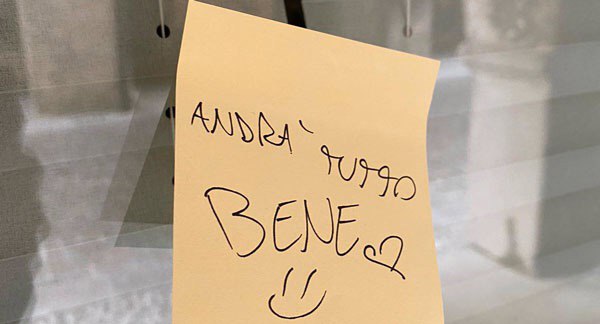 ANDRA' TUTTO
BENE